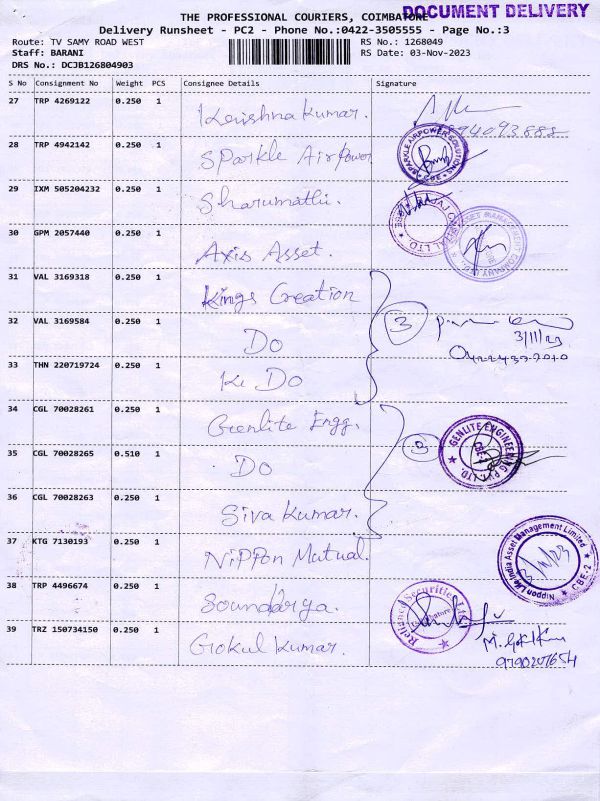 THE PROFESSIONAL COURIERS, COIMBATORE
DOCUMENT DELIVERY
Delivery Runsheet - PC2 - Phone No.:0422-3505555 - Page No.:3
Route: TV SAMY ROAD WEST RS No.: 1268049
Staff: BARANI RS Date: 03-Nov-2023
DRS No.: DCJB126804903
S No Consignment No Weight PCS Consignee Details Signature
27 TRP 4269122 0.250 1 Krishna Kumar.
28 TRP 4942142 0.250 1 Sparkle Airpower
SPARKLE AIRPOWER SOLUTIONS
29 IXM 505204232 0.250 1 Sharumathi.
30 GPM 2057440 0.250 1 Axis Asset.
ASSET MANAGEMENT COMPANY
31 VAL 3169318 0.250 1 Kings Creation
32 VAL 3169584 0.250 1 Do 3
3/11/23
33 THN 220719724 0.250 1 Do
34 CGL 70028261 0.250 1 Genlite Engg.
35 CGL 70028265 0.510 1 Do
GENLITE ENGINEERING PVT. LTD. CBE-2
36 CGL 70028263 0.250 1 Siva Kumar.
37 KTG 7130193 0.250 1 Nippon Mutual.
Nippon Life India Asset Management Limited CBE-2
38 TRP 4496674 0.250 1 Soundarya.
Reliance Securities Ltd Coimbatore
39 TRZ 150734150 0.250 1 Gokul Kumar.